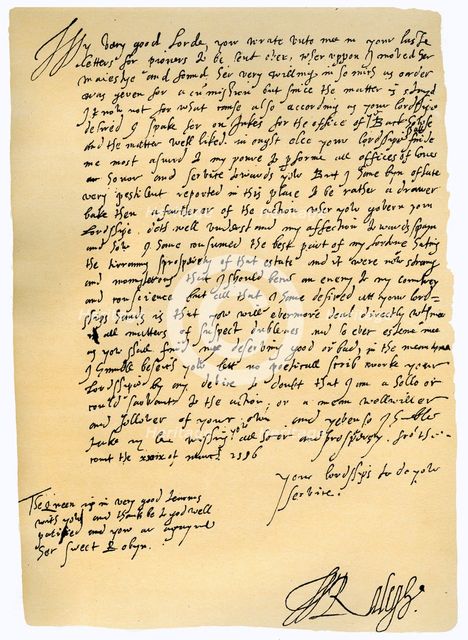 My very good Lorde, you wrate unto mee in your laste
letters for pioners to be sent over, wheruppon I moved her
maiestye and found her very willing in so mich as order
was geven for a cumishion but since the matter is stayd
I know not for what cause also according as your lordshipe
desired I spake for on Jukes for the office of the Back
and the matter well liked. in ought else your lordship shall finde
me most asured to my poure to performe all offices of love
honor and service towards you But I have byn of late
very pestilent reported in this place to be rather a drawer
bake then a fartherer of the action wher you govern your
lordshipe doth well understand my affection towards spayn
and how I have consumed the best part of my fortune hating
the tirranus prosperity of that estate and it were now strang
and monsterous that I should becum an enemy to my countrey
and conscience but all that I have desired att your lord-
ships hands is that you will evermore deal directly with mee
in all matters of suspect dublenes and so ever esteme mee
as you shall find mee deserving good or bad, in the mean tyme
I humble beseich you lett no poeticall scrib worke your
lordship by any device to doubt that I am a hollo or
could sarvant to the action, or a mean wellwiller
and follower of your own and yeven so I humble
take my leve wishing you all honor and prosperety. from the
court the xxix of march 1586
your lordships to do you
service.
The Queen is in very good tearms
with you and thanks be to god well
pacified and you ar agayne
her sweet Robyn.
W Ralegh.